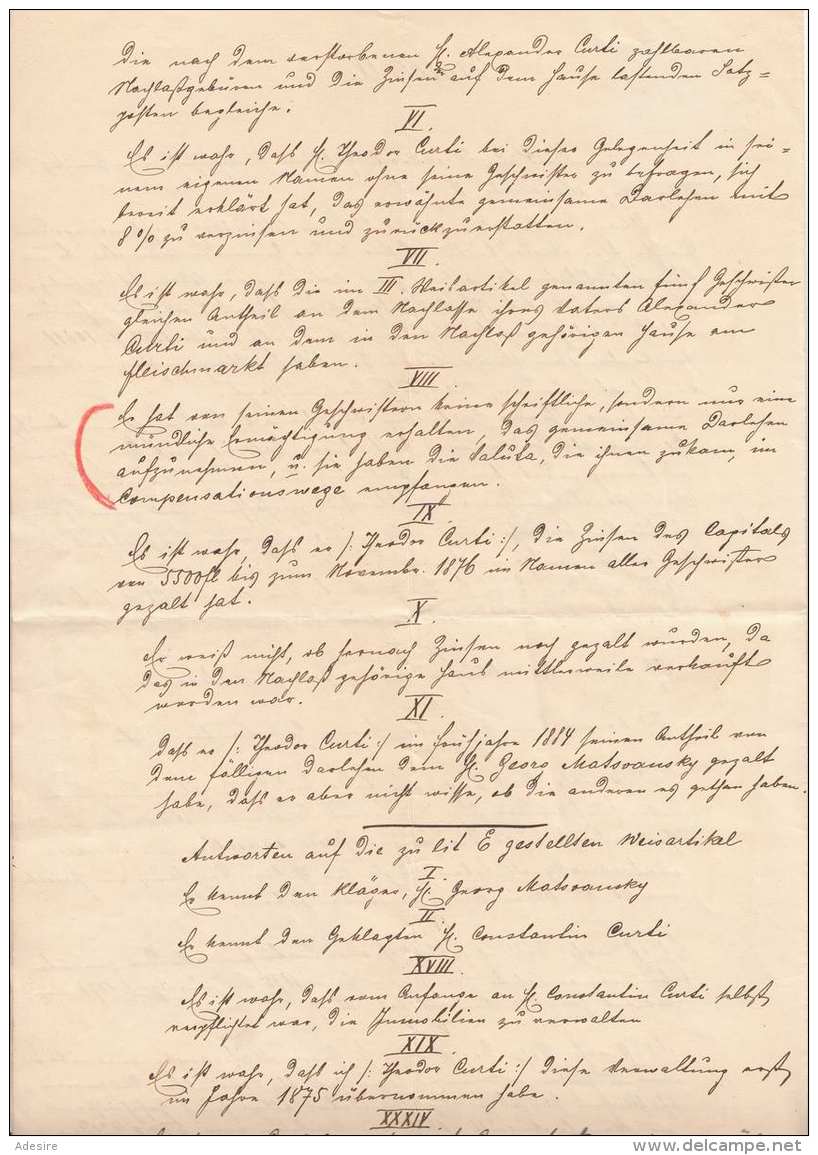 die nach dem verstorbenen H. Alexander Curti zahlbaren
Nachlaßgebüren und die Zinsen der auf dem Hause lastenden Satz=
posten begleiche.
VI.
Es ist wahr, daß H. Theodor Curti bei dieser Gelegenheit in sei=
nem eigenen Namen ohne seine Geschwister zu befragen, sich
bereit erklärt hat, das erwähnte gemeinsame Darlehen mit
8% zu verzinsen und zurückzuerstatten.
VII.
Es ist wahr, daß die im III. Weisartikel genannten fünf Geschwister
gleichen Antheil an dem Nachlasse ihres Vaters Alexander
Curti und an dem in den Nachlaß gehörigen Hause am
Fleischmarkt haben.
VIII
Er hat von seinen Geschwistern keine schriftliche, sondern nur eine
mündliche Ermächtigung erhalten, das gemeinsame Darlehen
aufzunehmen, u. sie haben die Valuta, die ihnen zukam, im
Compensationswege empfangen.
IX
Es ist wahr, daß er /: Theodor Curti :/, die Zinsen des Capitals
von 5500 fl bis zum Novembr. 1876 im Namen aller Geschwister
gezalt hat.
X.
Er weiß nicht, ob hernach Zinsen noch gezalt wurden, da
das in den Nachlaß gehörige Haus mittlerweile verkauft
worden war.
XI.
Daß er /: Theodor Curti :/ im Frühjahre 1884 seinen Antheil von
dem fälligen Darlehen dem H. Georg Matsvansky gezalt
habe, daß er aber nicht wisse, ob die anderen es gethan haben.
Antworten auf die zu lit E gestellten Weisartikel
I.
Er kennt den Kläger, H. Georg Matsvansky
II.
Er kennt den Geklagten H. Constantin Curti
XVIII.
Es ist wahr, daß vom Anfange an H. Constantin Curti selbst
verpflichtet war, die Immobilien zu verwalten
XIX.
Es ist wahr, daß ich /: Theodor Curti :/ diese Verwaltung erst
im Jahre 1875 übernommen habe.
XXXIV
Adesire
delcampe.net